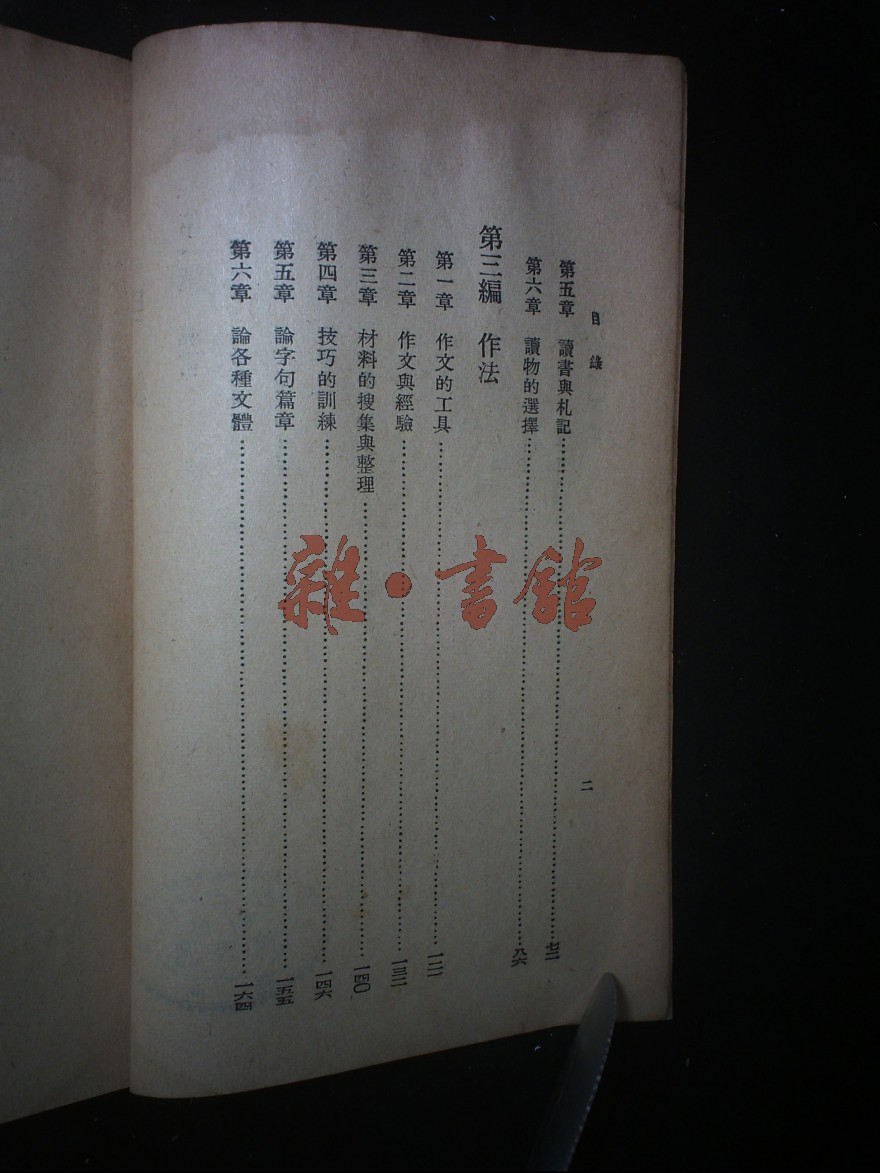 目錄
二
第五章 讀書與札記……七二
第六章 讀物的選擇……八六
第三編 作法
第一章 作文的工具……
第二章 作文與經驗……
第三章 材料的搜集與整理……一四〇
第四章 技巧的訓練……一四六
第五章 論字句篇章……一五五
第六章 論各種文體……一六四
雜·書館